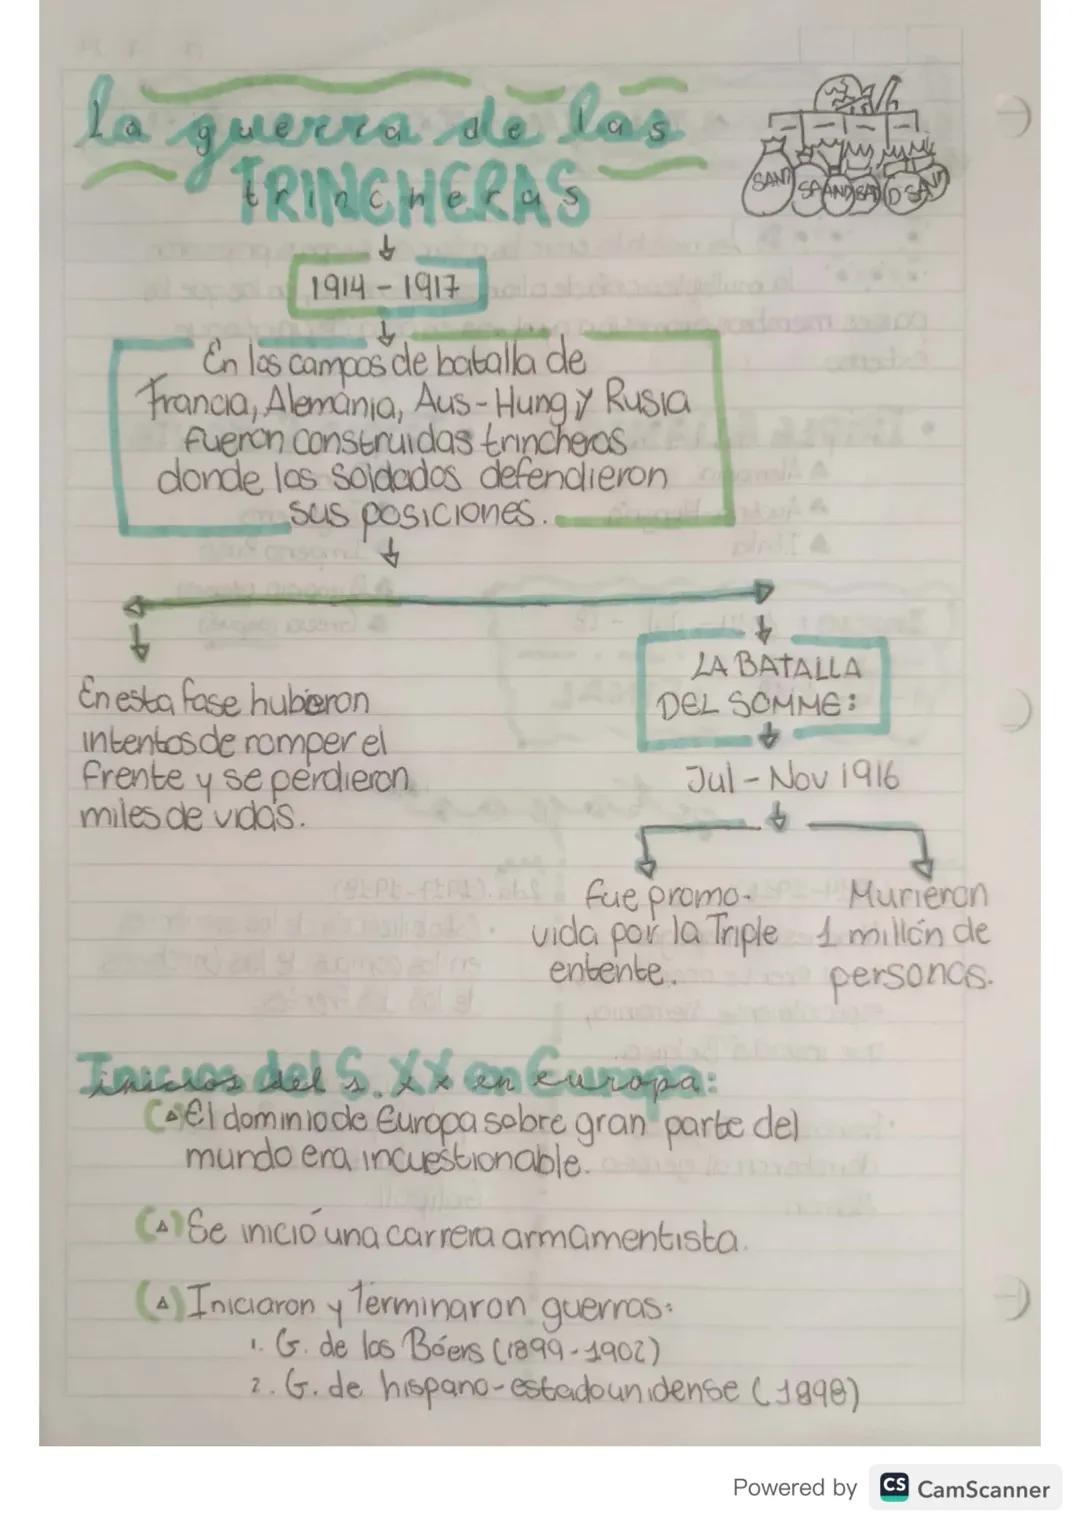 La guerra de las
TRINCHERAS
trincheras
1914 - 1917
En los campos de batalla de
Francia, Alemania, Aus-Hung y Rusia
fueron construidas trincheras
donde los soldados defendieron
sus posiciones.
En esta fase hubieron
intentos de romper el
frente y se perdieron
miles de vidas.
LA BATALLA
DEL SOMME:
Jul - Nov 1916
fue promo-
vida por la Triple
entente.
Murieron
1 millón de
personas.
Inicios del S. XX en Europa:
El dominio de Europa sobre gran parte del
mundo era incuestionable.
Se inició una carrera armamentista.
Iniciaron y terminaron guerras:
1. G. de los Bóers (1899-1902)
2. G. de hispano-estadounidense (1898)
SAND
Powered by CS CamScanner